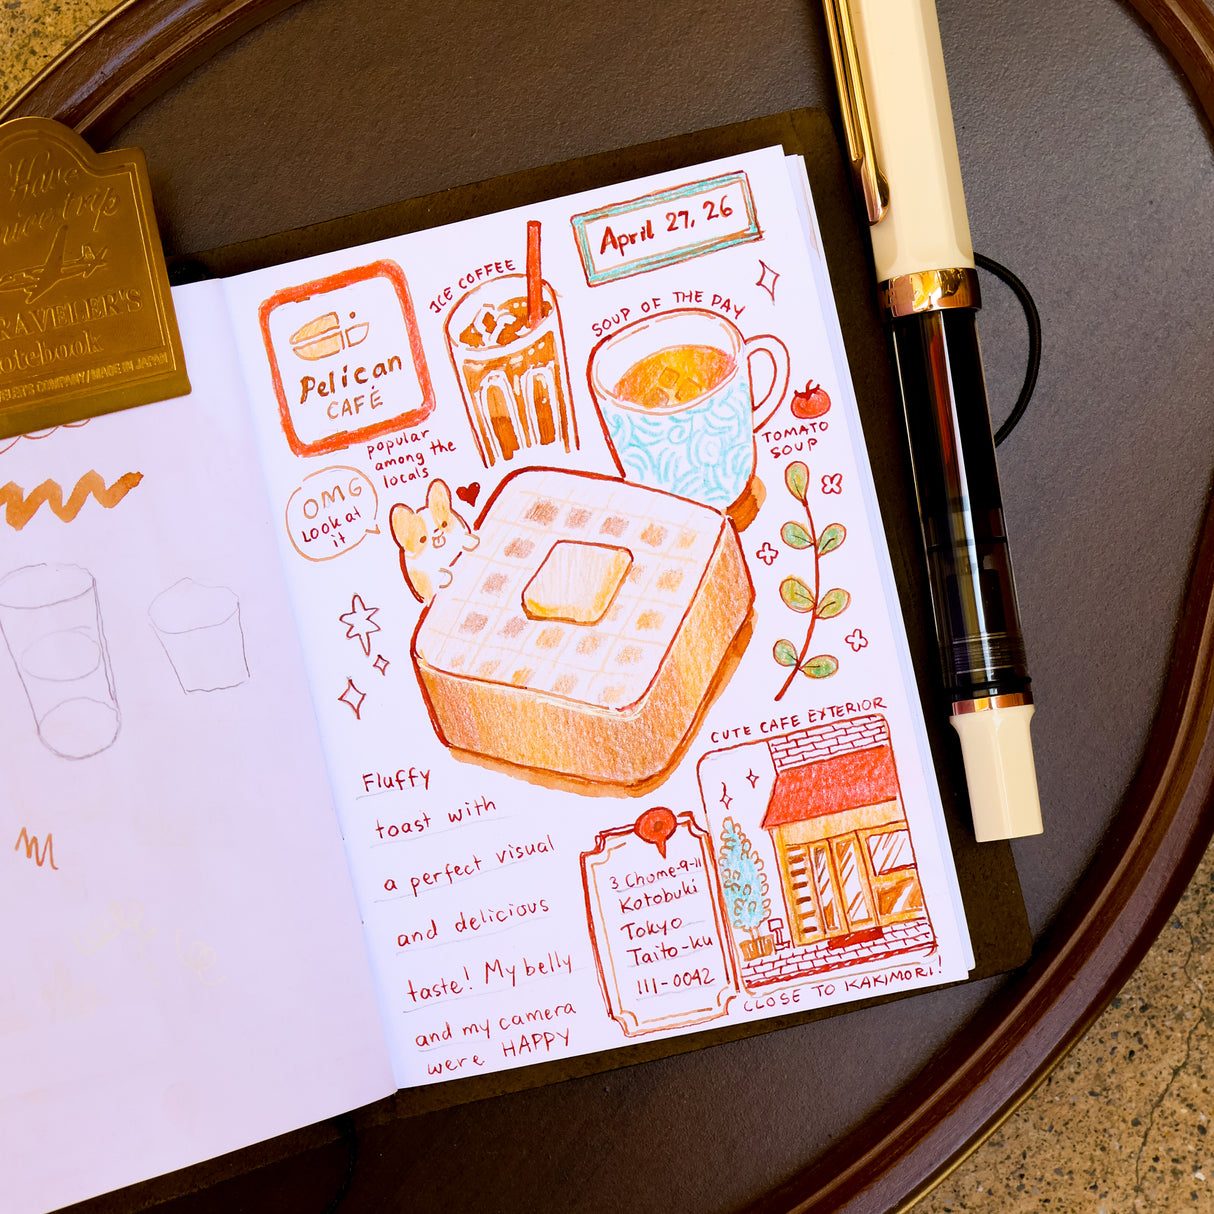 Have
a nice trip
TRAVELER'S
notebook
TRAVELER'S COMPANY/MADE IN JAPAN
April 27, 26
ICE COFFEE
SOUP OF THE DAY
Pelican
CAFÉ
popular
among the
locals
TOMATO
SOUP
OMG
Look at
it
CUTE CAFE EXTERIOR
Fluffy
toast with
a perfect visual
and delicious
taste! My belly
and my camera
were HAPPY
3 Chome-9-11
Kotobuki
Tokyo
Taito-ku
111-0042
CLOSE TO KAKIMORI!
m